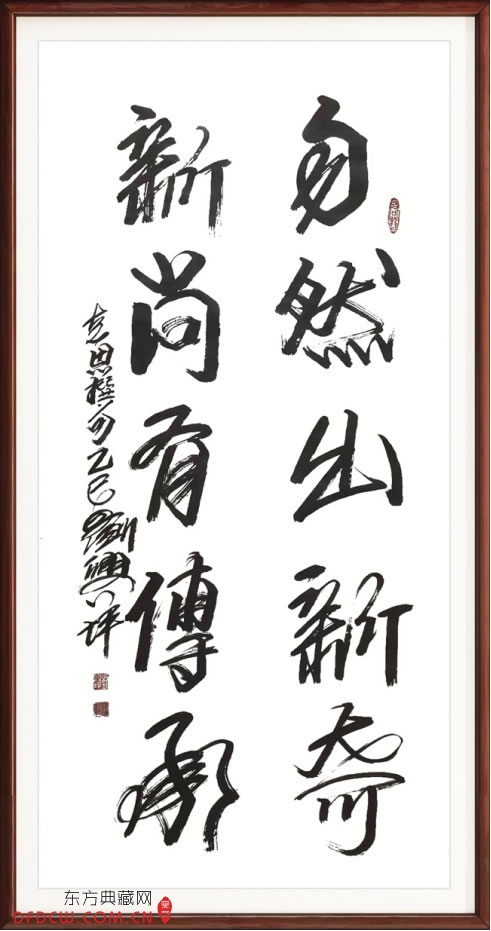 自然出新奇
新尚有傳承
撰句乙巳劉興
东方典藏网
DFDCW.COM.CN